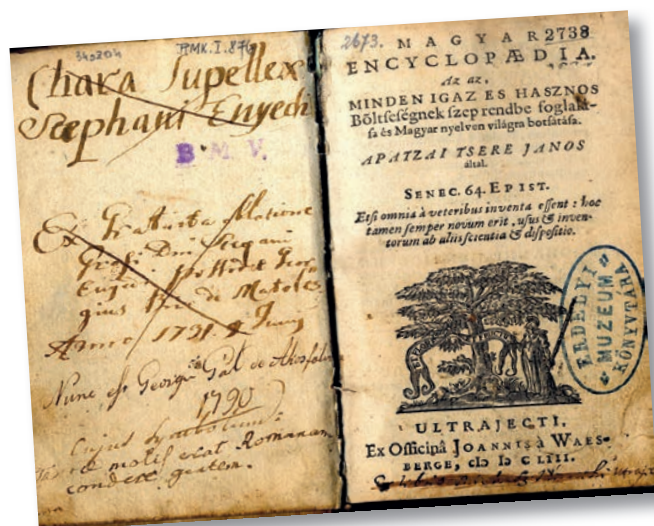 340204
RMK.I.876
Chara Supellex
Stephani Enyedi
B. M. V.
Ex Gratuita
Dni Stephani
Enyedi
Anno 1731.
Nunc est Georgii Gál de
1790
Cujus Symbolum:
molis erat Romanam
condere gentem.
2673.
2738
MAGYAR
ENCYCLOPÆDIA.
Az az,
MINDEN IGAZ ES HASZNOS
Böltseségnek szep rendbe foglalá-
sa és Magyar nyelven világra botsátása.
APATZAI TSERE JANOS
által.
SENEC. 64. EPIST.
Etsi omnia à veteribus inventa essent: hoc
tamen semper novum erit, usus & inven-
torum ab aliis scientia & dispositio.
ERDÉLYI
MUZEUM
KÖNYVTÁRA
ULTRAJECTI,
Ex Officinâ JOANNIS à WAES-
BERGE, clↄ Iↄ CLIII.